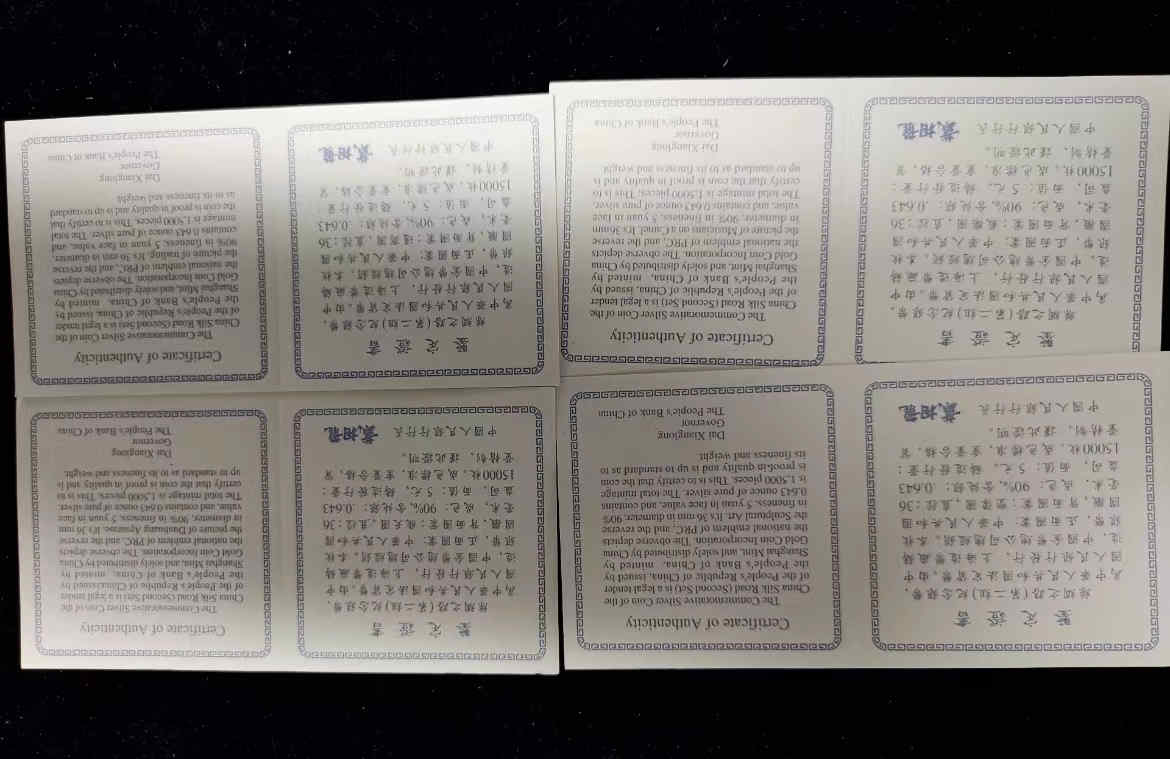 鑒定證書
絲綢之路(第二組)紀念銀幣,
為中華人民共和國法定貨幣,由中
國人民銀行發行,上海造幣廠鑄
造,中國金幣總公司總經銷。本枚
銀幣,正面圖案:中華人民共和國
國徽,背面圖案:直徑:36
毫米,成色:90%,含純銀:0.643
盎司,面值:5元。鑄造發行量:
15000枚,成色標準,重量合格,質
量精制,謹此證明。
中國人民銀行行長 戴相龍
Certificate of Authenticity
The Commemorative Silver Coin of the
China Silk Road (Second Set) is a legal tender
of the People's Republic of China, issued by
the People's Bank of China, minted by
Shanghai Mint, and solely distributed by China
Gold Coin Incorporation. The obverse depicts
the national emblem of PRC, and the reverse
the Sculptural Art. It's 36 mm in diameter, 90%
in fineness, 5 yuan in face value, and contains
0.643 ounce of pure silver. The total mintage
is 15000 pieces. This is to certify that the coin
is proof in quality and is up to standard as to
its fineness and weight.
Dai Xianglong
Governor
The People's Bank of China
鑒定證書
絲綢之路(第二組)紀念銀幣,
為中華人民共和國法定貨幣,由中
國人民銀行發行,上海造幣廠鑄
造,中國金幣總公司總經銷。本枚
銀幣,正面圖案:中華人民共和國
國徽,背面圖案:飛天圖,直徑:36
毫米,成色:90%,含純銀:0.643
盎司,面值:5元,鑄造發行量:
15000枚,成色標準,重量合格,質
量精制,謹此證明。
中國人民銀行行長 戴相龍
Certificate of Authenticity
The Commemorative Silver Coin of the
China Silk Road (Second Set) is a legal tender
of the People's Republic of China, issued by
the People's Bank of China, minted by
Shanghai Mint, and solely distributed by China
Gold Coin Incorporation. The obverse depicts
the national emblem of PRC, and the reverse
the picture of Dunhuang Apsarise. It's 36 mm
in diameter, 90% in fineness, 5 yuan in face
value, and contains 0.643 ounce of pure silver.
The total mintage is 15000 pieces. This is to
certify that the coin is proof in quality and is
up to standard as to its fineness and weight.
Dai Xianglong
Governor
The People's Bank of China
鑒定證書
絲綢之路(第二組)紀念銀幣,
為中華人民共和國法定貨幣,由中
國人民銀行發行,上海造幣廠鑄
造,中國金幣總公司總經銷。本枚
銀幣,正面圖案:中華人民共和國
國徽,背面圖案:直徑:36
毫米,成色:90%,含純銀:0.643
盎司,面值:5元。鑄造發行量:
15000枚,成色標準,重量合格,質
量精制,謹此證明。
中國人民銀行行長 戴相龍
Certificate of Authenticity
The Commemorative Silver Coin of the
China Silk Road (Second Set) is a legal tender
of the People's Republic of China, issued by
the People's Bank of China, minted by
Shanghai Mint, and solely distributed by China
Gold Coin Incorporation. The obverse depicts
the national emblem of PRC, and the reverse
the picture of Musicians on a Camel. It's 36mm
in diameter, 90% in fineness, 5 yuan in face
value, and contains 0.643 ounce of pure silver.
The total mintage is 15000 pieces. This is to
certify that the coin is proof in quality and is
up to standard as to its fineness and weight
Dai Xianglong
Governor
The People's Bank of China
鑒定證書
絲綢之路(第二組)紀念銀幣,
為中華人民共和國法定貨幣,由中
國人民銀行發行,上海造幣廠鑄
造,中國金幣總公司總經銷。本枚
銀幣,正面圖案:中華人民共和國
國徽,背面圖案:通商圖,直徑:36
毫米,成色:90%,含純銀:0.643
盎司,面值:5元,鑄造發行量:
15000枚,成色標準,重量合格,質
量精制,謹此證明。
中國人民銀行行長 戴相龍
Certificate of Authenticity
The Commemorative Silver Coin of the
China Silk Road (Second Set) is a legal tender
of the People's Republic of China, issued by
the People's Bank of China, minted by
Shanghai Mint, and solely distributed by China
Gold Coin Incorporation. The obverse depicts
the national emblem of PRC, and the reverse
the picture of trading. It's 36 mm in diameter,
90% in fineness, 5 yuan in face value, and
contains 0.643 ounce of pure silver. The total
mintage is 15000 pieces. This is to certify that
the coin is proof in quality and is up to standard
as to its fineness and weight.
Dai Xianglong
Governor
The People's Bank of China